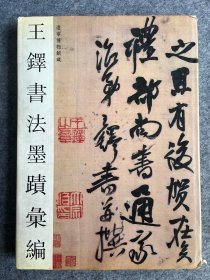 王鐸書法墨蹟彙編
遼寧博物館藏
之具有後賀在
禮部尚書通家
治弟鐸書并撰